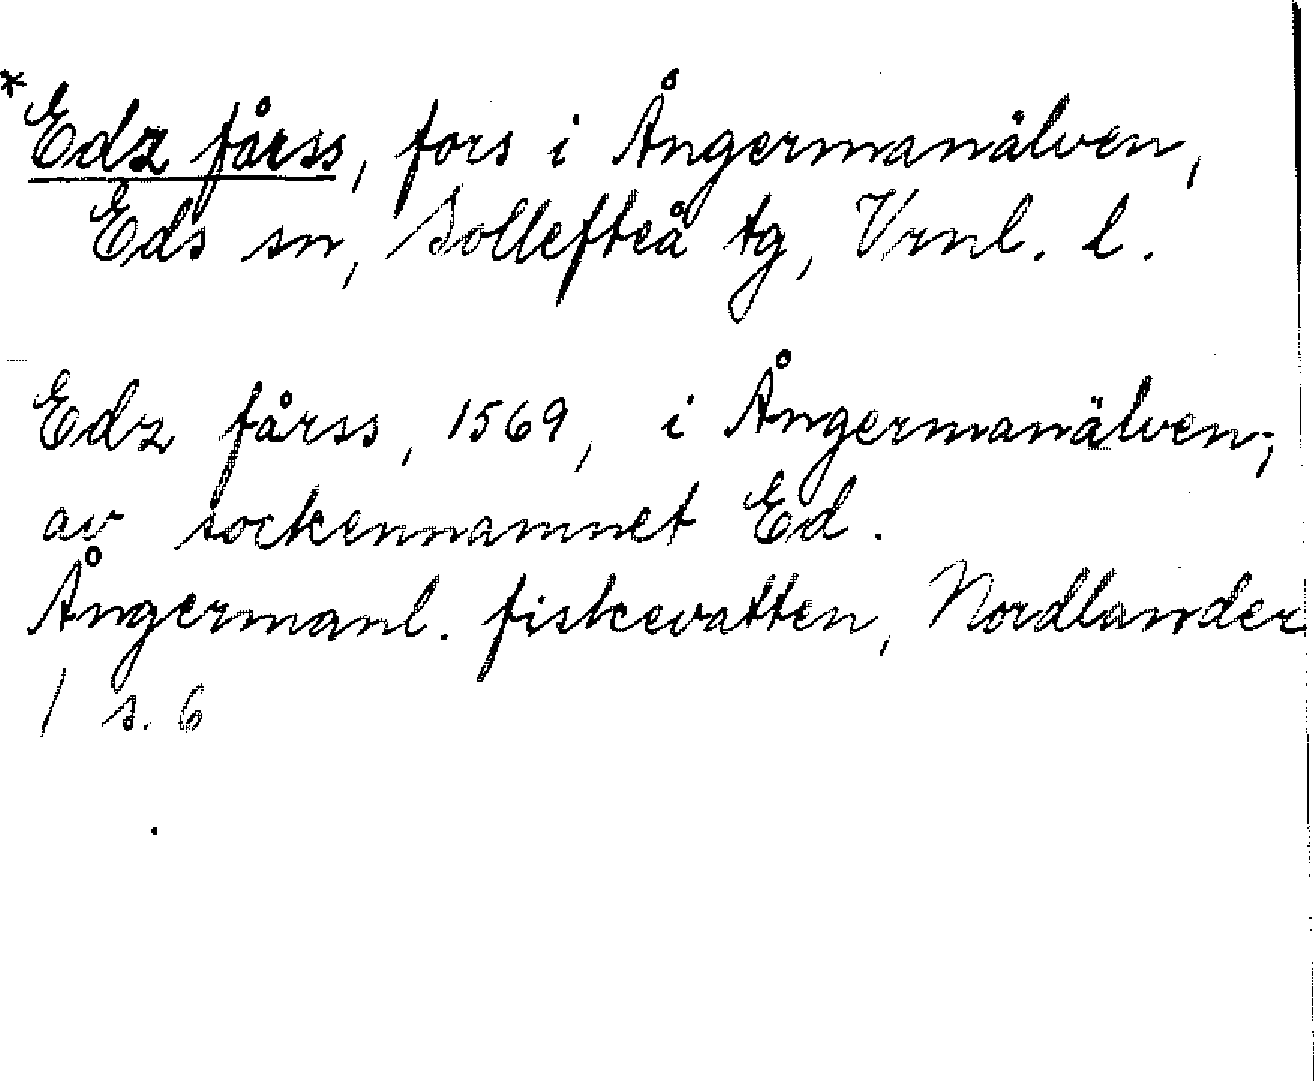 *Edz fårss, fors i Ångermanälven,
Eds sn, Sollefteå tg, Vrnl. l.
Edz fårss, 1569, i Ångermanälven;
av sockennamnet Ed.
Ångermanl. fiskevatten, Nordlander
1 s. 6